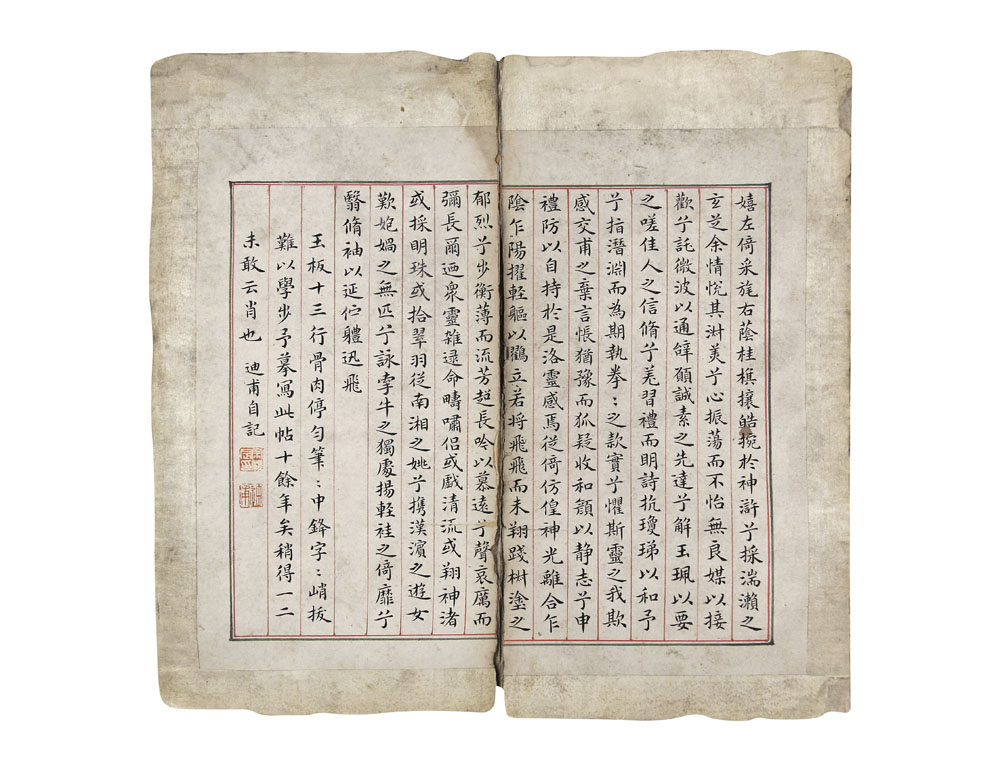 嬉左倚采旄右蔭桂旗攘皓捥於神滸兮採湍瀨之
玄芝余情悅其淑美兮心振蕩而不怡無良媒以接
歡兮託微波以通辭願誠素之先達兮解玉珮以要
之嗟佳人之信脩兮羌習禮而明詩抗瓊珶以和予
兮指潛淵而為期執拳〻之款實兮懼斯靈之我欺
感交甫之棄言悵猶豫而狐疑收和顏以静志兮申
禮防以自持於是洛靈感焉徙倚仿偟神光離合乍
陰乍陽擢輕軀以鸖立若將飛而未翔踐椒塗之
郁烈兮步衡薄而流芳超長吟以慕遠兮聲哀厲而
彌長爾迺衆靈雜遝命疇嘯侶或戲清流或翔神渚
或採明珠或拾翠羽從南湘之姚兮攜漢濱之遊女
歎炮媧之無匹兮詠牽牛之獨處揚輕袿之倚靡兮
翳脩袖以延佇軆迅飛
玉板十三行骨肉停勻筆〻中鋒字〻峭拔
難以學步予摹寫此帖十餘年矣稍得一二
未敢云肖也 迪甫自記